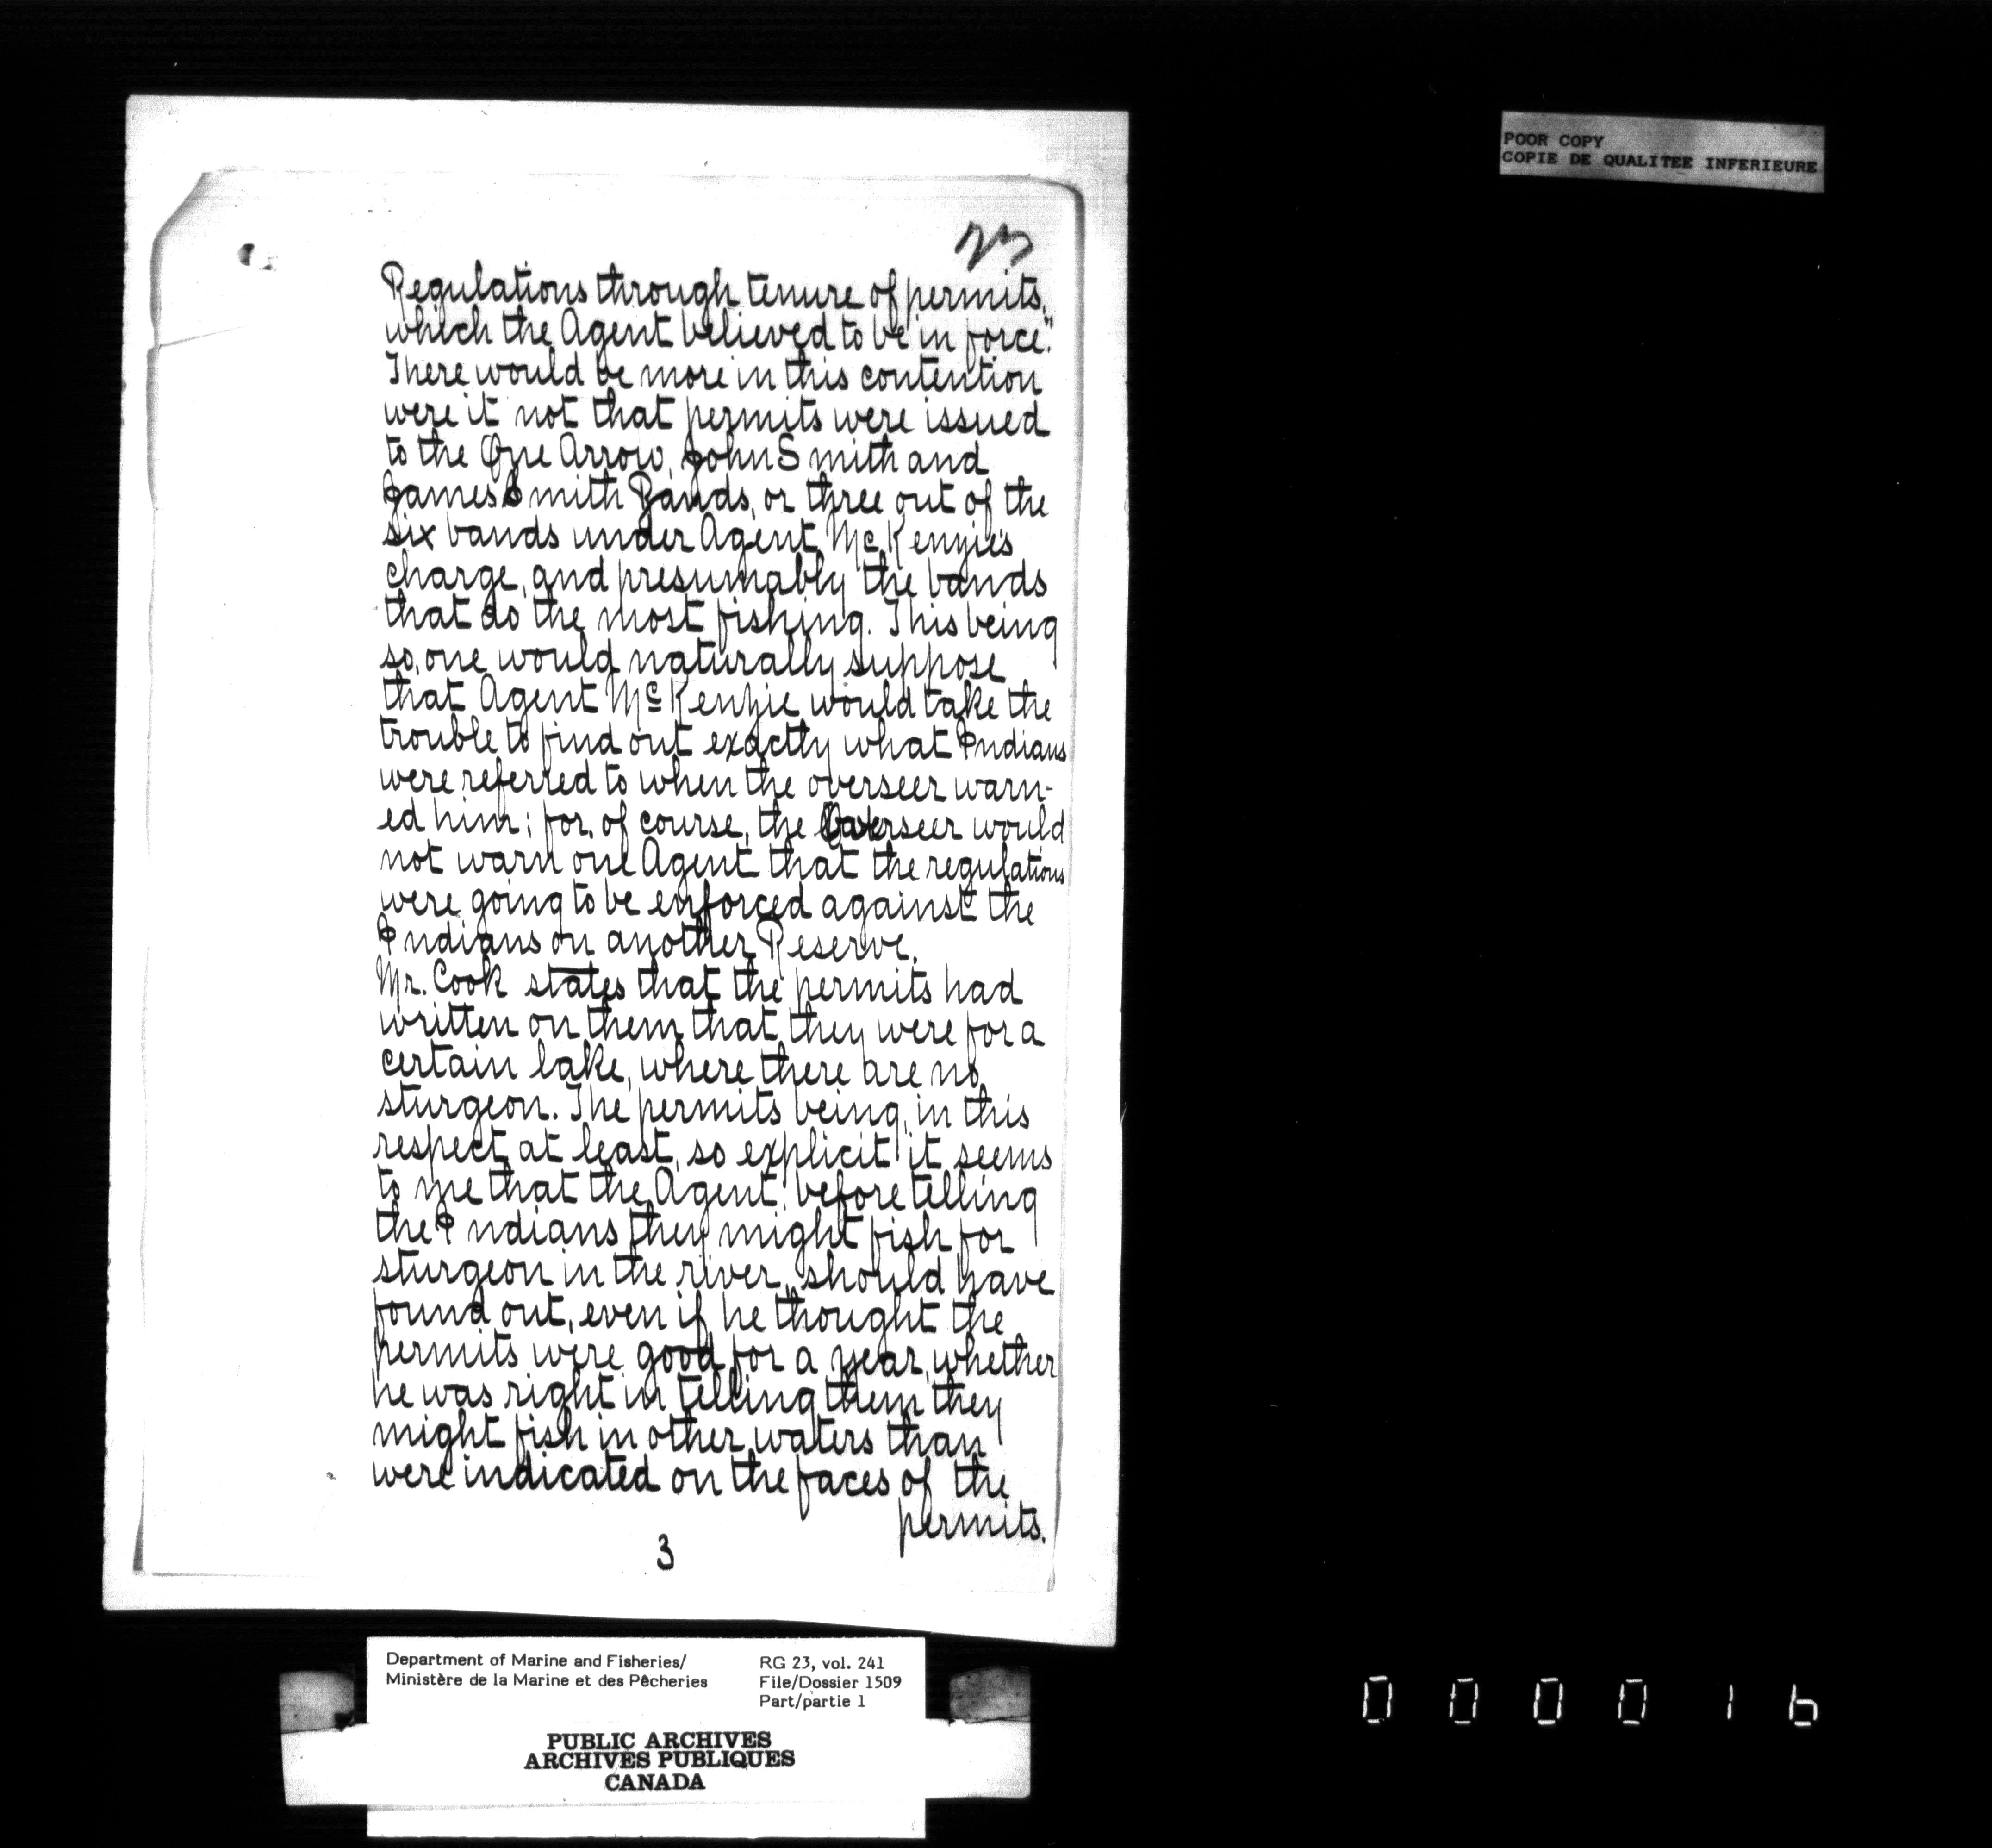 POOR COPY
COPIE DE QUALITEE INFERIEURE
Regulations through tenure of permits,
which the Agent believed to be in force."
There would be more in this contention
were it not that permits were issued
to the One Arrow, John Smith and
James Smith Bands, or three out of the
six bands under Agent McKenzie's
charge, and presumably the bands
that do the most fishing. This being
so, one would naturally suppose
that Agent McKenzie would take the
trouble to find out exactly what Indians
were referred to when the overseer warn-
ed him; for, of course, the Overseer would
not warn one Agent that the regulations
were going to be enforced against the
Indians on another Reserve.
Mr. Cook states that the permits had
written on them that they were for a
certain lake, where there are no
sturgeon. The permits being, in this
respect at least, so explicit, it seems
to me that the Agent, before telling
the Indians they might fish for
sturgeon in the river, should have
found out, even if he thought the
permits were good for a year, whether
he was right in telling them they
might fish in other waters than
were indicated on the faces of the
permits.
3
Department of Marine and Fisheries/
Ministère de la Marine et des Pêcheries
RG 23, vol. 241
File/Dossier 1509
Part/partie 1
PUBLIC ARCHIVES
ARCHIVES PUBLIQUES
CANADA
000016